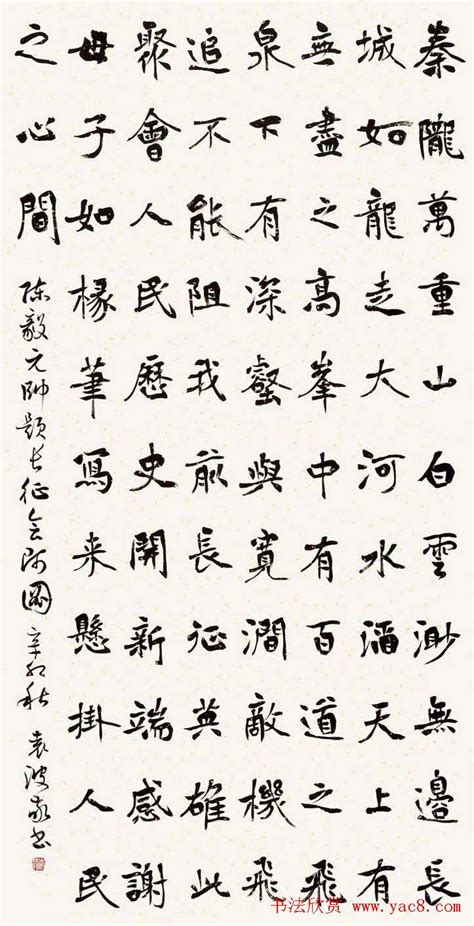 秦隴萬重山白雲渺無邊長
城如龍走大河水滔天上有
無盡之高峯中有百道之飛
泉下有深壑與寬澗敵機飛
追不能阻我前長征英雄此
聚會人民歷史開新端感謝
母子如椽筆寫来懸掛人民
之心間
陈毅元帥题长征会师圖 辛卯秋 袁波敬书
书法欣赏 www.yac8.com